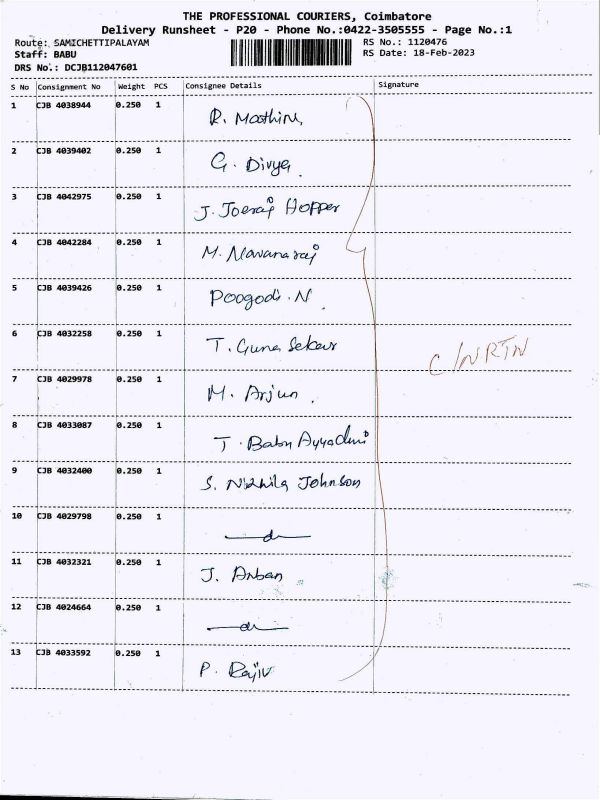 THE PROFESSIONAL COURIERS, Coimbatore
Delivery Runsheet - P20 - Phone No.:0422-3505555 - Page No.:1
Route: SAMICHETTIPALAYAM RS No.: 1120476
Staff: BABU RS Date: 18-Feb-2023
DRS No.: DCJB112047601
S No Consignment No Weight PCS Consignee Details Signature
1 CJB 4038944 0.250 1 R.
2 CJB 4039402 0.250 1 G. Divya
3 CJB 4042975 0.250 1 J. Joeraj Hopper
4 CJB 4042284 0.250 1 M.
5 CJB 4039426 0.250 1 Poogodi. N
6 CJB 4032258 0.250 1 T. Guna Sekar
C/NRTN
7 CJB 4029978 0.250 1 M. Arjun
8 CJB 4033087 0.250 1 T. Babu
9 CJB 4032400 0.250 1 S. Johnson
10 CJB 4029798 0.250 1 do
11 CJB 4032321 0.250 1 J. Anban
12 CJB 4024664 0.250 1 do
13 CJB 4033592 0.250 1 P. Rajiv